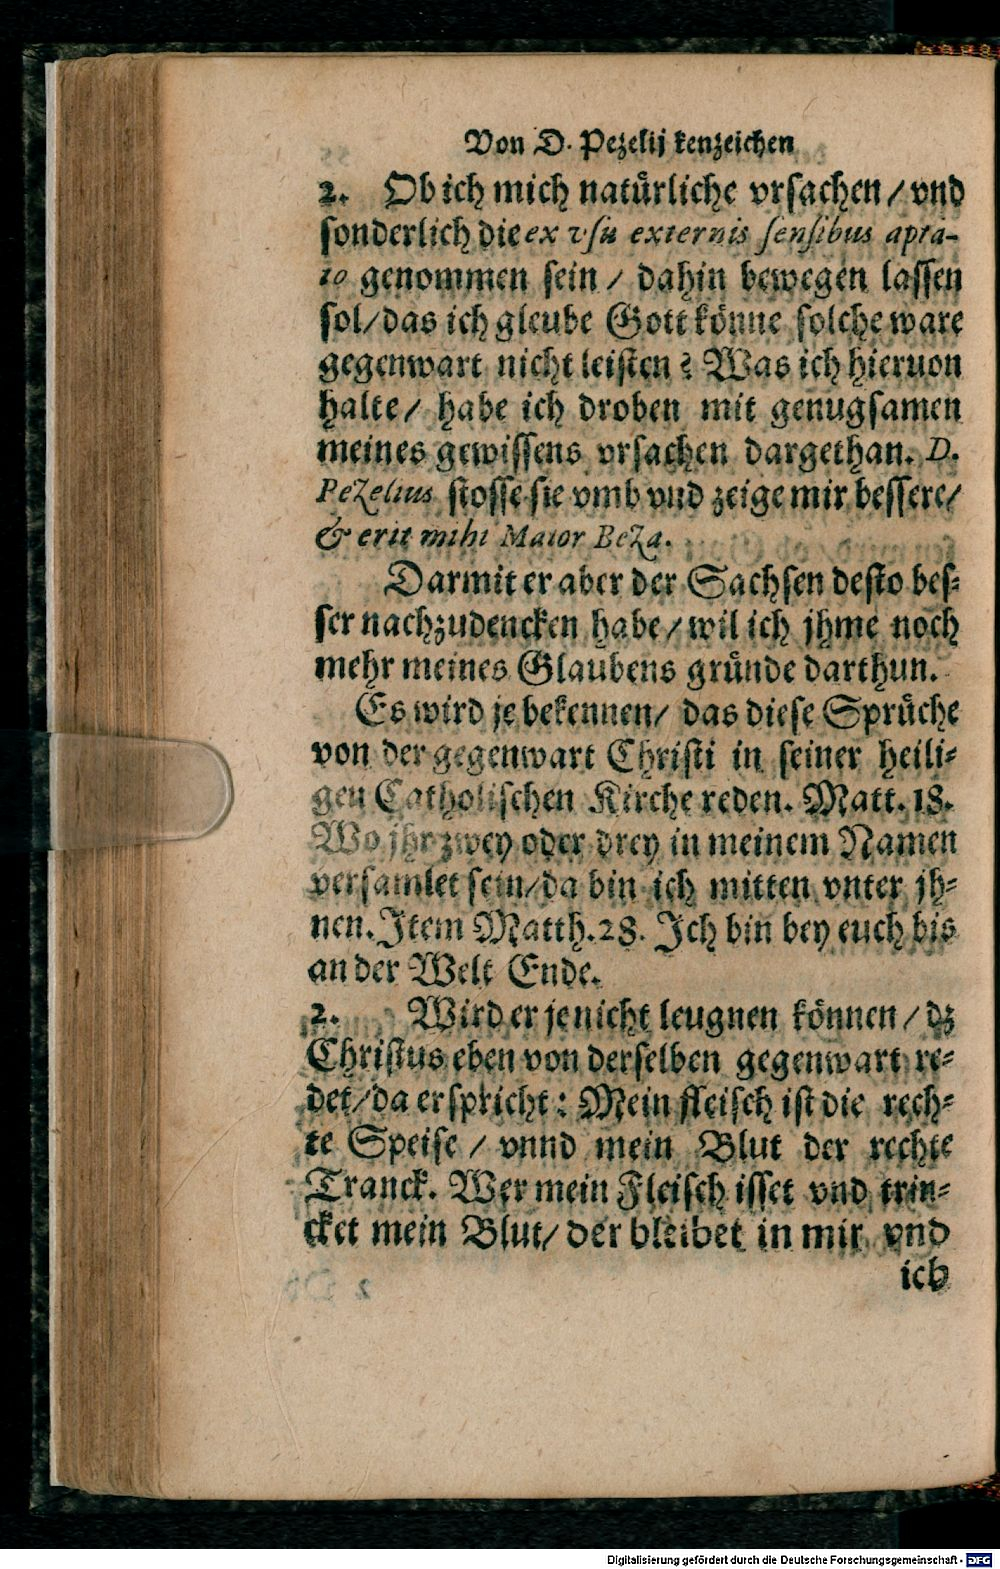 Von D. Pezelij kenzeichen
2. Ob ich mich natürliche vrsachen / vnd
sonderlich die ex vsu externis sensibus apta-
to genommen sein / dahin bewegen lassen
sol / das ich gleube Gott könne solche ware
gegenwart nicht leisten? Was ich hieruon
halte / habe ich droben mit genugsamen
meines gewissens vrsachen dargethan. D.
Pezelius stosse sie vmb vnd zeige mir bessere /
& erit mihi Maior Beza.
Darmit er aber der Sachsen desto bes-
ser nachzudencken habe / wil ich jhme noch
mehr meines Glaubens gründe darthun.
Es wird je bekennen / das diese Sprüche
von der gegenwart Christi in seiner heili-
gen Catholischen Kirche reden. Matt. 18.
Wo jhr zwey oder drey in meinem Namen
versamlet sein / da bin ich mitten vnter jh-
nen. Item Matth. 28. Ich bin bey euch bis
an der Welt Ende.
2. Wird er je nicht leugnen können / dz
Christus eben von derselben gegenwart re-
det / da er spricht: Mein fleisch ist die rech-
te Speise / vnnd mein Blut der rechte
Tranck. Wer mein Fleisch isset vnd trin-
cket mein Blut / der bleibet in mir vnd
ich
Digitalisierung gefördert durch die Deutsche Forschungsgemeinschaft - DFG